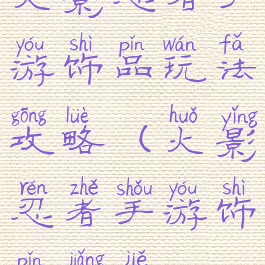 yóu shì pǐn wán fǎ
游饰品玩法
gōng lüè huǒ yǐng
攻略（火影
rěn zhě shǒu yóu shì
忍者手游饰
pǐn jiǎng jiě